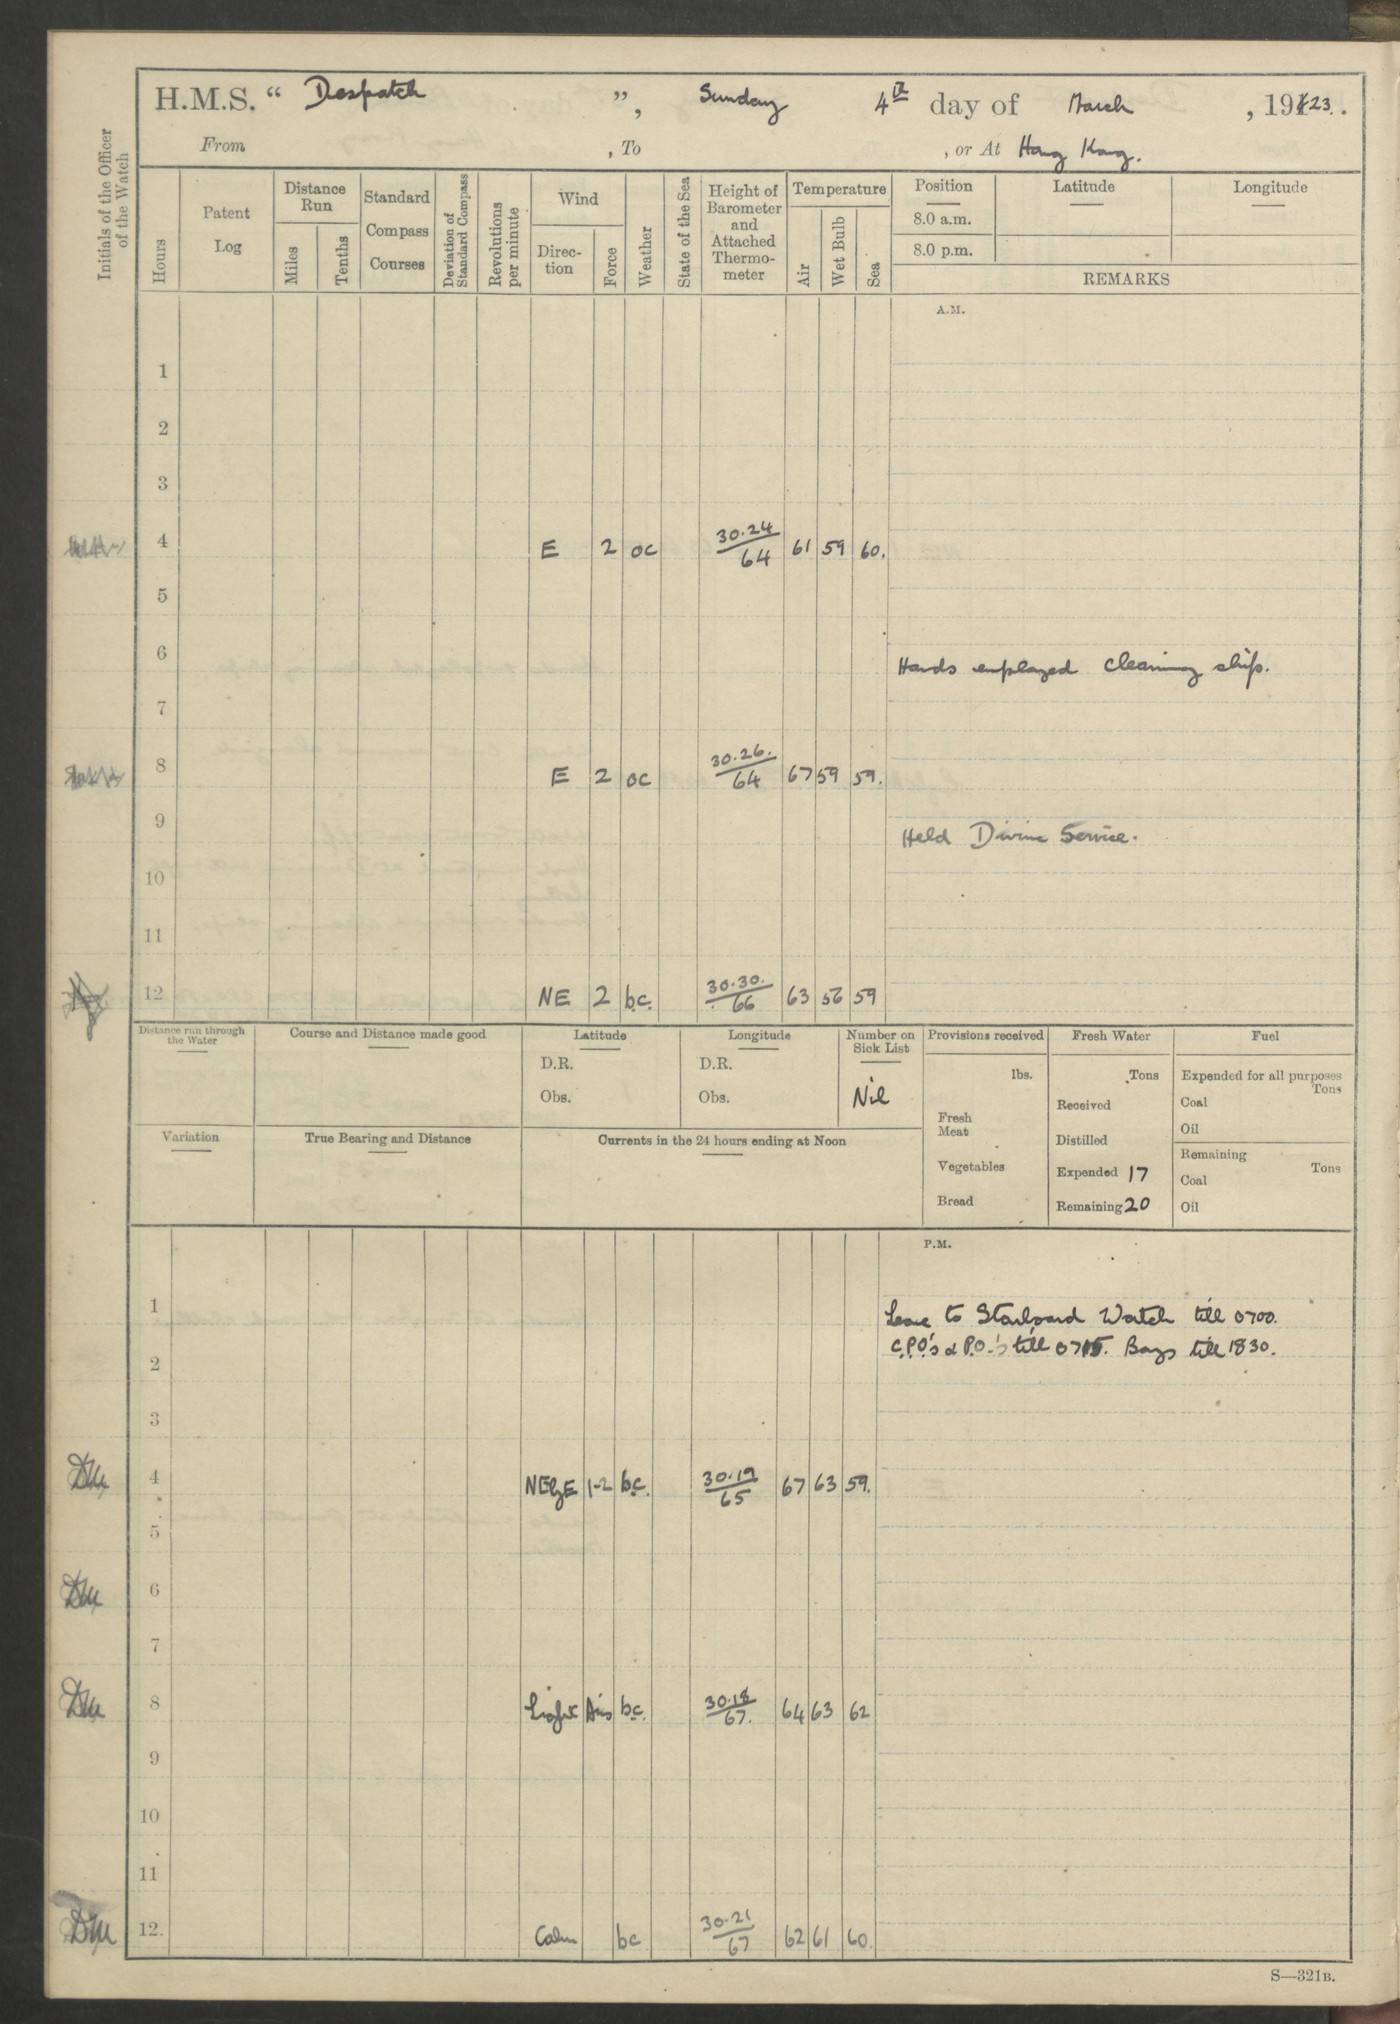 H.M.S. “ Despatch ”, Sunday 4th day of March, 1923.
From , To , or At Hong Kong.
Initials of the Officer of the Watch
Hours
Patent Log
Distance Run
Miles
Tenths
Standard Compass Courses
Deviation of Standard Compass
Revolutions per minute
Wind
Direc-tion
Force
Weather
State of the Sea
Height of Barometer and Attached Thermo-meter
Temperature
Air
Wet Bulb
Sea
Position Latitude Longitude
8.0 a.m.
8.0 p.m.
REMARKS
A.M.
1
2
3
4 E 2 oc 30.24/64 61 59 60.
5
6 Hands employed cleaning ship.
7
8 E 2 oc 30.26./64 67 59 59.
9 Held Divine Service.
10
11
12 NE 2 b.c. 30.30./66 63 56 59
Distance run through the Water
Course and Distance made good
Latitude
D.R.
Obs.
Longitude
D.R.
Obs.
Number on Sick List
Nil
Provisions received
lbs.
Fresh Meat
Vegetables
Bread
Fresh Water
Tons
Received
Distilled
Expended 17
Remaining 20
Fuel
Expended for all purposes
Tons
Coal
Oil
Remaining
Tons
Coal
Oil
Variation
True Bearing and Distance
Currents in the 24 hours ending at Noon
P.M.
1 Leave to Starboard Watch till 0700.
C.P.O's & P.O.'s till 0715. Boys till 1830.
2
3
4 NEbyE 1-2 b.c. 30.19/65 67 63 59.
5
6
7
8 Light Airs b.c. 30.18/67. 64 63 62
9
10
11
12. Calm bc 30.21/67 62 61 60.
S—321B.